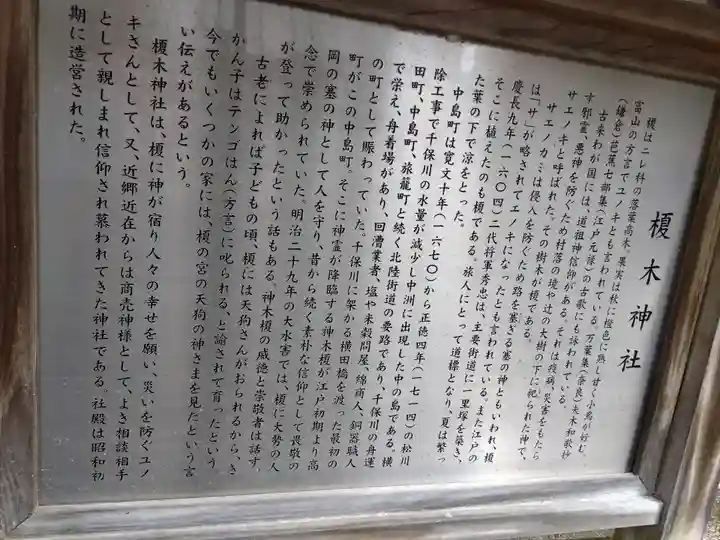 榎木神社
榎はニレ科の落葉高木。果実は秋に橙色に熟し甘く小鳥が好む。
富山の方言でユノキとも言われている。万葉集(奈良)夫木和歌抄
(鎌倉)芭蕉七部集(江戸元禄)の古歌にも詠われている。
古来わが国には、道祖神信仰がある。それは疫病、災害をもたら
す邪霊、悪神を防ぐため村落の境や辻の大樹の下に祀られた神で、
サエノキと呼ばれた。その樹木が榎である。
サエノカミは侵入を防ぐため路を塞ぎる塞の神ともいわれ、榎
は「サ」が略されてエノキになったとも言われている。また江戸の
慶長九年(一六〇四)二代将軍秀忠は、主要街道に一里塚を築き、
そこに植えたのも榎である。旅人にとって道標となり、夏は繁っ
た葉の下で涼をとった。
中島町は寛文十年(一六七〇)から正徳四年(一七一四)の松川
除工事で千保川の水量が減少し中洲に出現した中の島である。横
田町、中島町、旅籠町と続く北陸街道の要路であり、千保川の舟運
で栄え、舟着場があり、回漕業者、塩や米穀問屋、綿商人、銅器職人
の町として賑わっていた。千保川に架かる横田橋を渡った最初の
町がこの中島町。そこに神霊が降臨する神木榎が江戸初期より高
岡の塞の神として人を守り、昔から続く素朴な信仰として畏敬の
念で崇められていた。明治二十九年の大水害では、榎に大勢の人
が登って助かったという話もある。神木榎の威徳と崇敬者は話す。
古老によれば子どもの頃、榎には天狗さんがおられるから、き
かん子はテンゴはん(方言)に叱られる、と諭されて育ったという
今でもいくつかの家には、榎の宮の天狗の神さまを見たという言
い伝えがあるという。
榎木神社は、榎に神が宿り人々の幸せを願い、災いを防ぐユノ
キさんとして、又、近郷近在からは商売神様として、よき相談相手
として親しまれ信仰され慕われてきた神社である。社殿は昭和初
期に造営された。